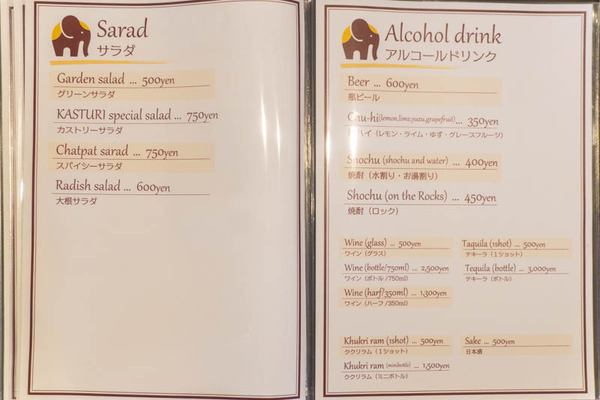 Sarad
サラダ
Garden salad ... 500yen
グリーンサラダ
KASTURI special salad ... 750yen
カストリーサラダ
Chatpat sarad ... 750yen
スパイシーサラダ
Radish salad ... 600yen
大根サラダ
Alcohol drink
アルコールドリンク
Beer ... 600yen
瓶ビール
Chu-hi(lemon,lime,yuzu,grapefruit)... 350yen
ハイ（レモン・ライム・ゆず・グレースフルーツ）
Shochu (shochu and water) ... 400yen
焼酎（水割り・お湯割り）
Shochu (on the Rocks) ... 450yen
焼酎（ロック）
Wine (glass) ... 500yen
ワイン（グラス）
Wine (bottle/750ml) ... 2,500yen
ワイン（ボトル/750ml）
Wine (harf/350ml) ... 1,300yen
ワイン（ハーフ/350ml）
Taquila (1shot) ... 500yen
テキーラ（1ショット）
Tequila (bottle) ... 3,000yen
テキーラ（ボトル）
Khukri ram (1shot) ... 500yen
ククリラム（1ショット）
Khukri ram (minibottle) ... 1,500yen
ククリラム（ミニボトル）
Sake ... 500yen
日本酒